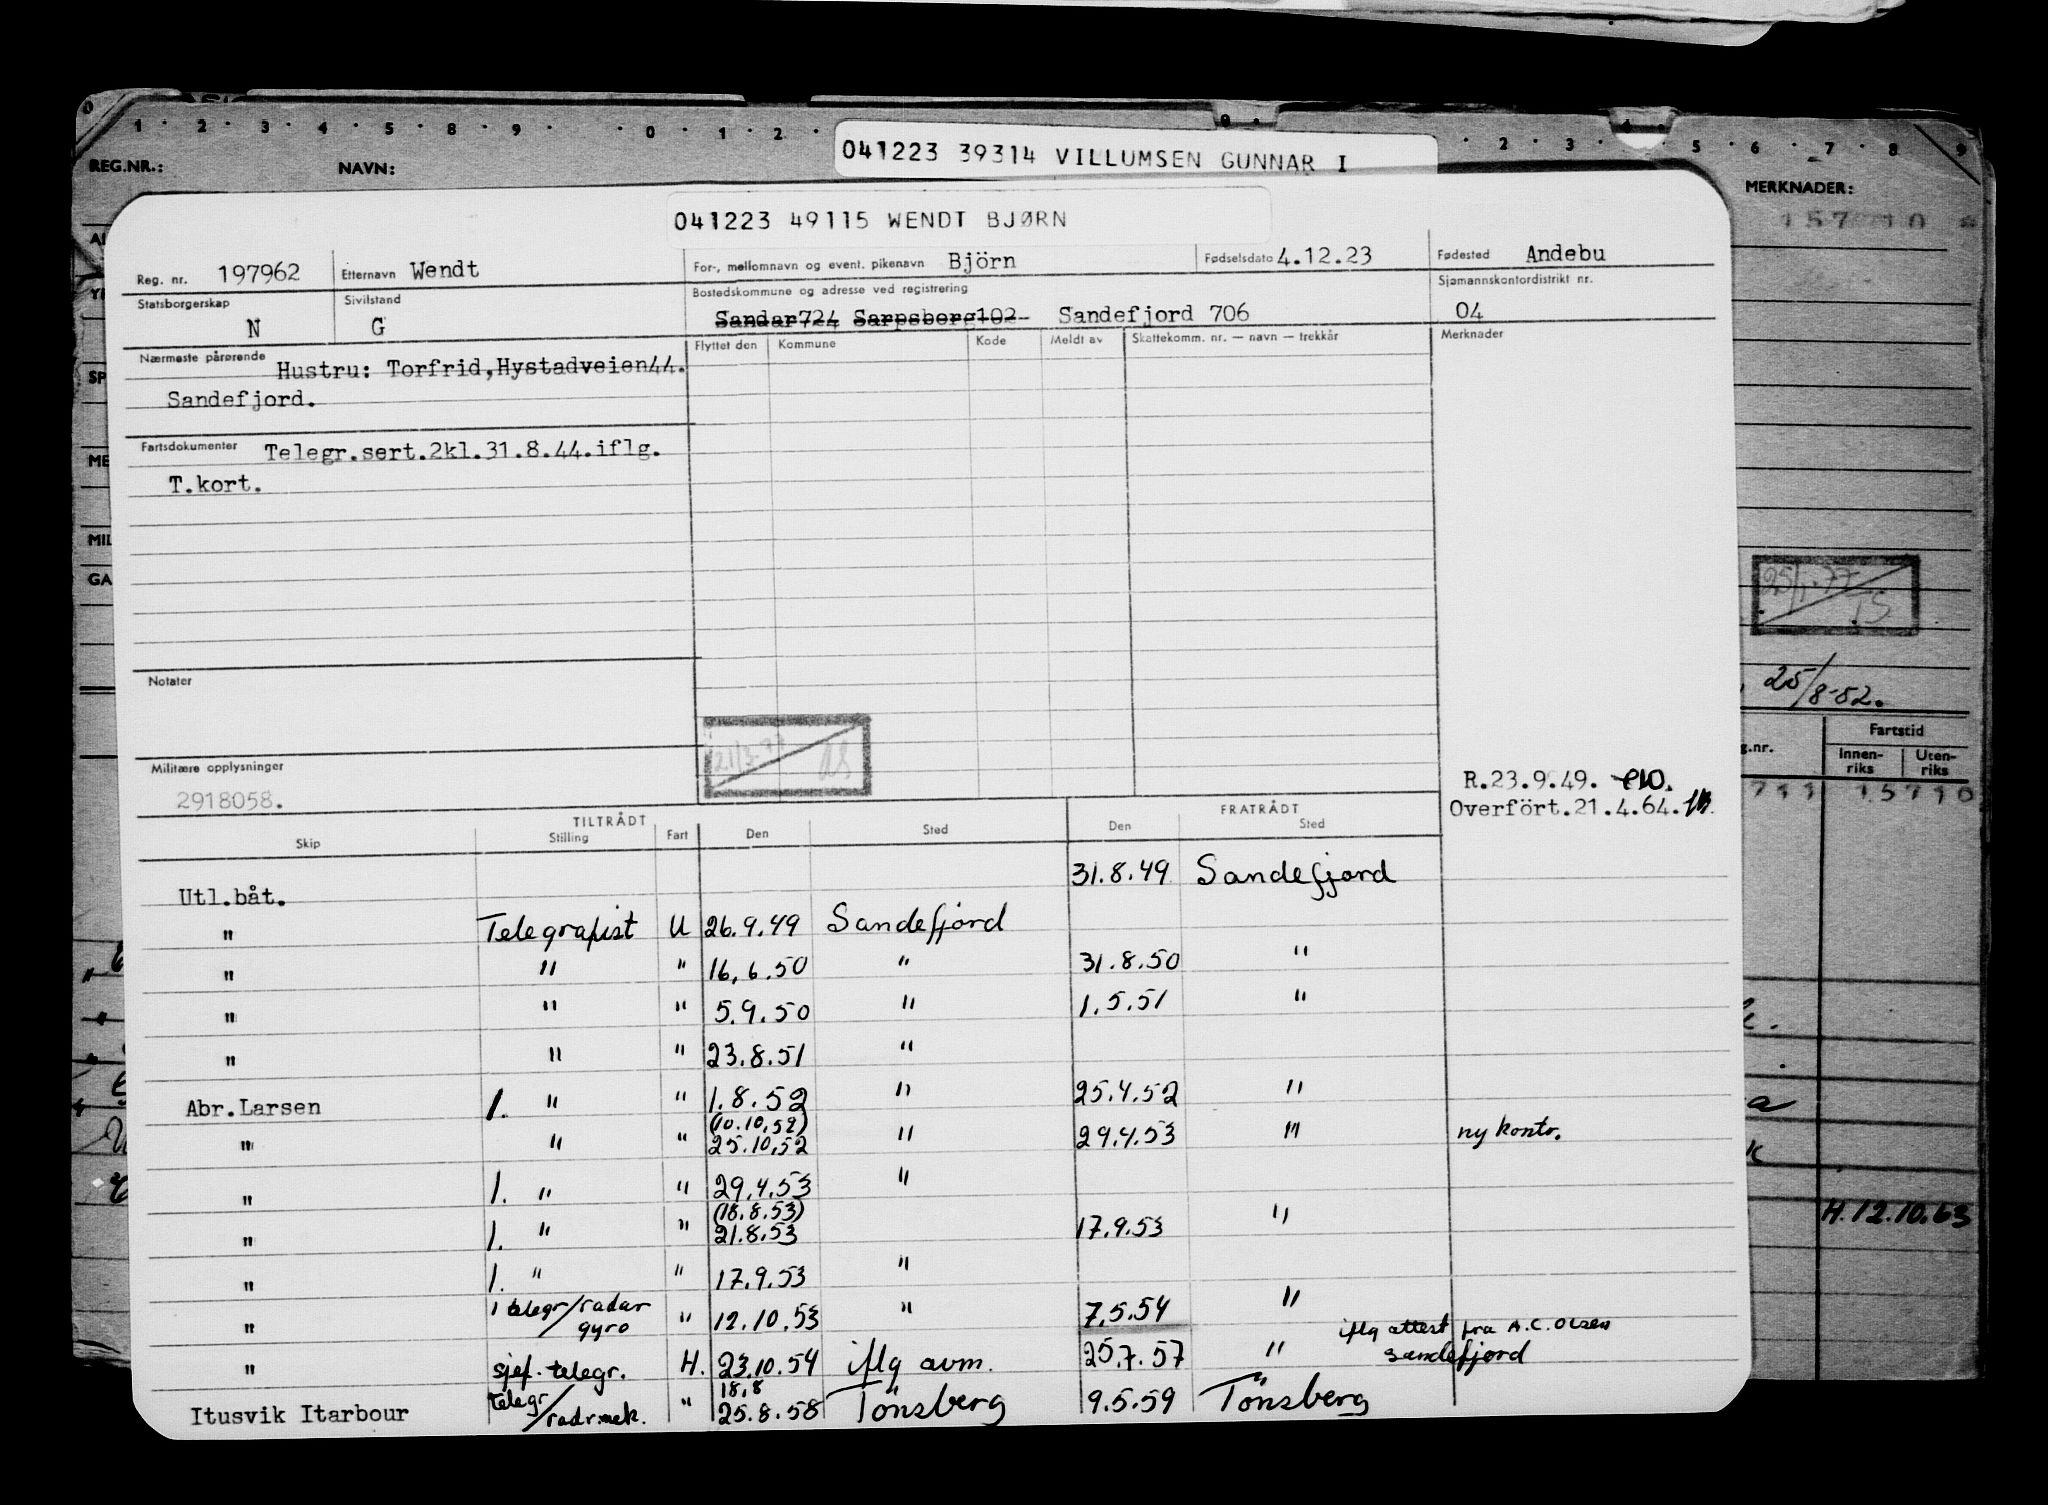 0 1 2 3 4 5 8 9 0 1 2 2 3 5 6 7 8 9
REG.NR.: NAVN: MERKNADER:
041223 39314 VILLUMSEN GUNNAR I
041223 49115 WENDT BJØRN
Reg. nr. 197962 Etternavn Wendt For-, mellomnavn og event. pikenavn Björn Fødselsdato 4.12.23 Fødested Andebu
Statsborgerskap N Sivilstand G Bostedskommune og adresse ved registrering Sandar724 Sarpsborg102 Sandefjord 706 Sjømannskontordistrikt nr. 04
Nærmeste pårørende Hustru: Torfrid,Hystadveien44.
Sandefjord.
Flyttet den Kommune Kode Meldt av Skattekomm. nr. — navn — trekkår Merknader
Fartsdokumenter Telegr.sert.2kl.31.8.44.iflg.
T.kort.
Notater
Militære opplysninger
2918058.
R.23.9.49.
Overfört.21.4.64.
25/8-52.
Fartstid
g.nr. Innen-riks Uten-riks
TILTRÅDT FRATRÅDT
Skip Stilling Fart Den Sted Den Sted
Utl.båt. 31.8.49 Sandefjord
" Telegrafist U 26.9.49 Sandefjord
" " " 16.6.50 " 31.8.50 "
" " " 5.9.50 " 1.5.51 "
" " " 23.8.51 "
Abr.Larsen 1. " " 1.8.52 " 25.4.52 "
" " " (10.10.52) 25.10.52 " 29.4.53 " ny kontr.
" 1. " " 29.4.53 "
" 1. " " (18.8.53) 21.8.53 17.9.53 "
" 1. " " 17.9.53 "
" 1 telegr/radar gyro " 12.10.53 " 7.5.54 "
" sjef. telegr. H. 23.10.54 iflg avm. 25.7.57 " iflg attest fra A.C. Olsen Sandefjord
Itusvik Itarbour telegr/radr.mek. " 18.8 25.8.58 Tönsberg 9.5.59 Tönsberg
H. 12.10.63